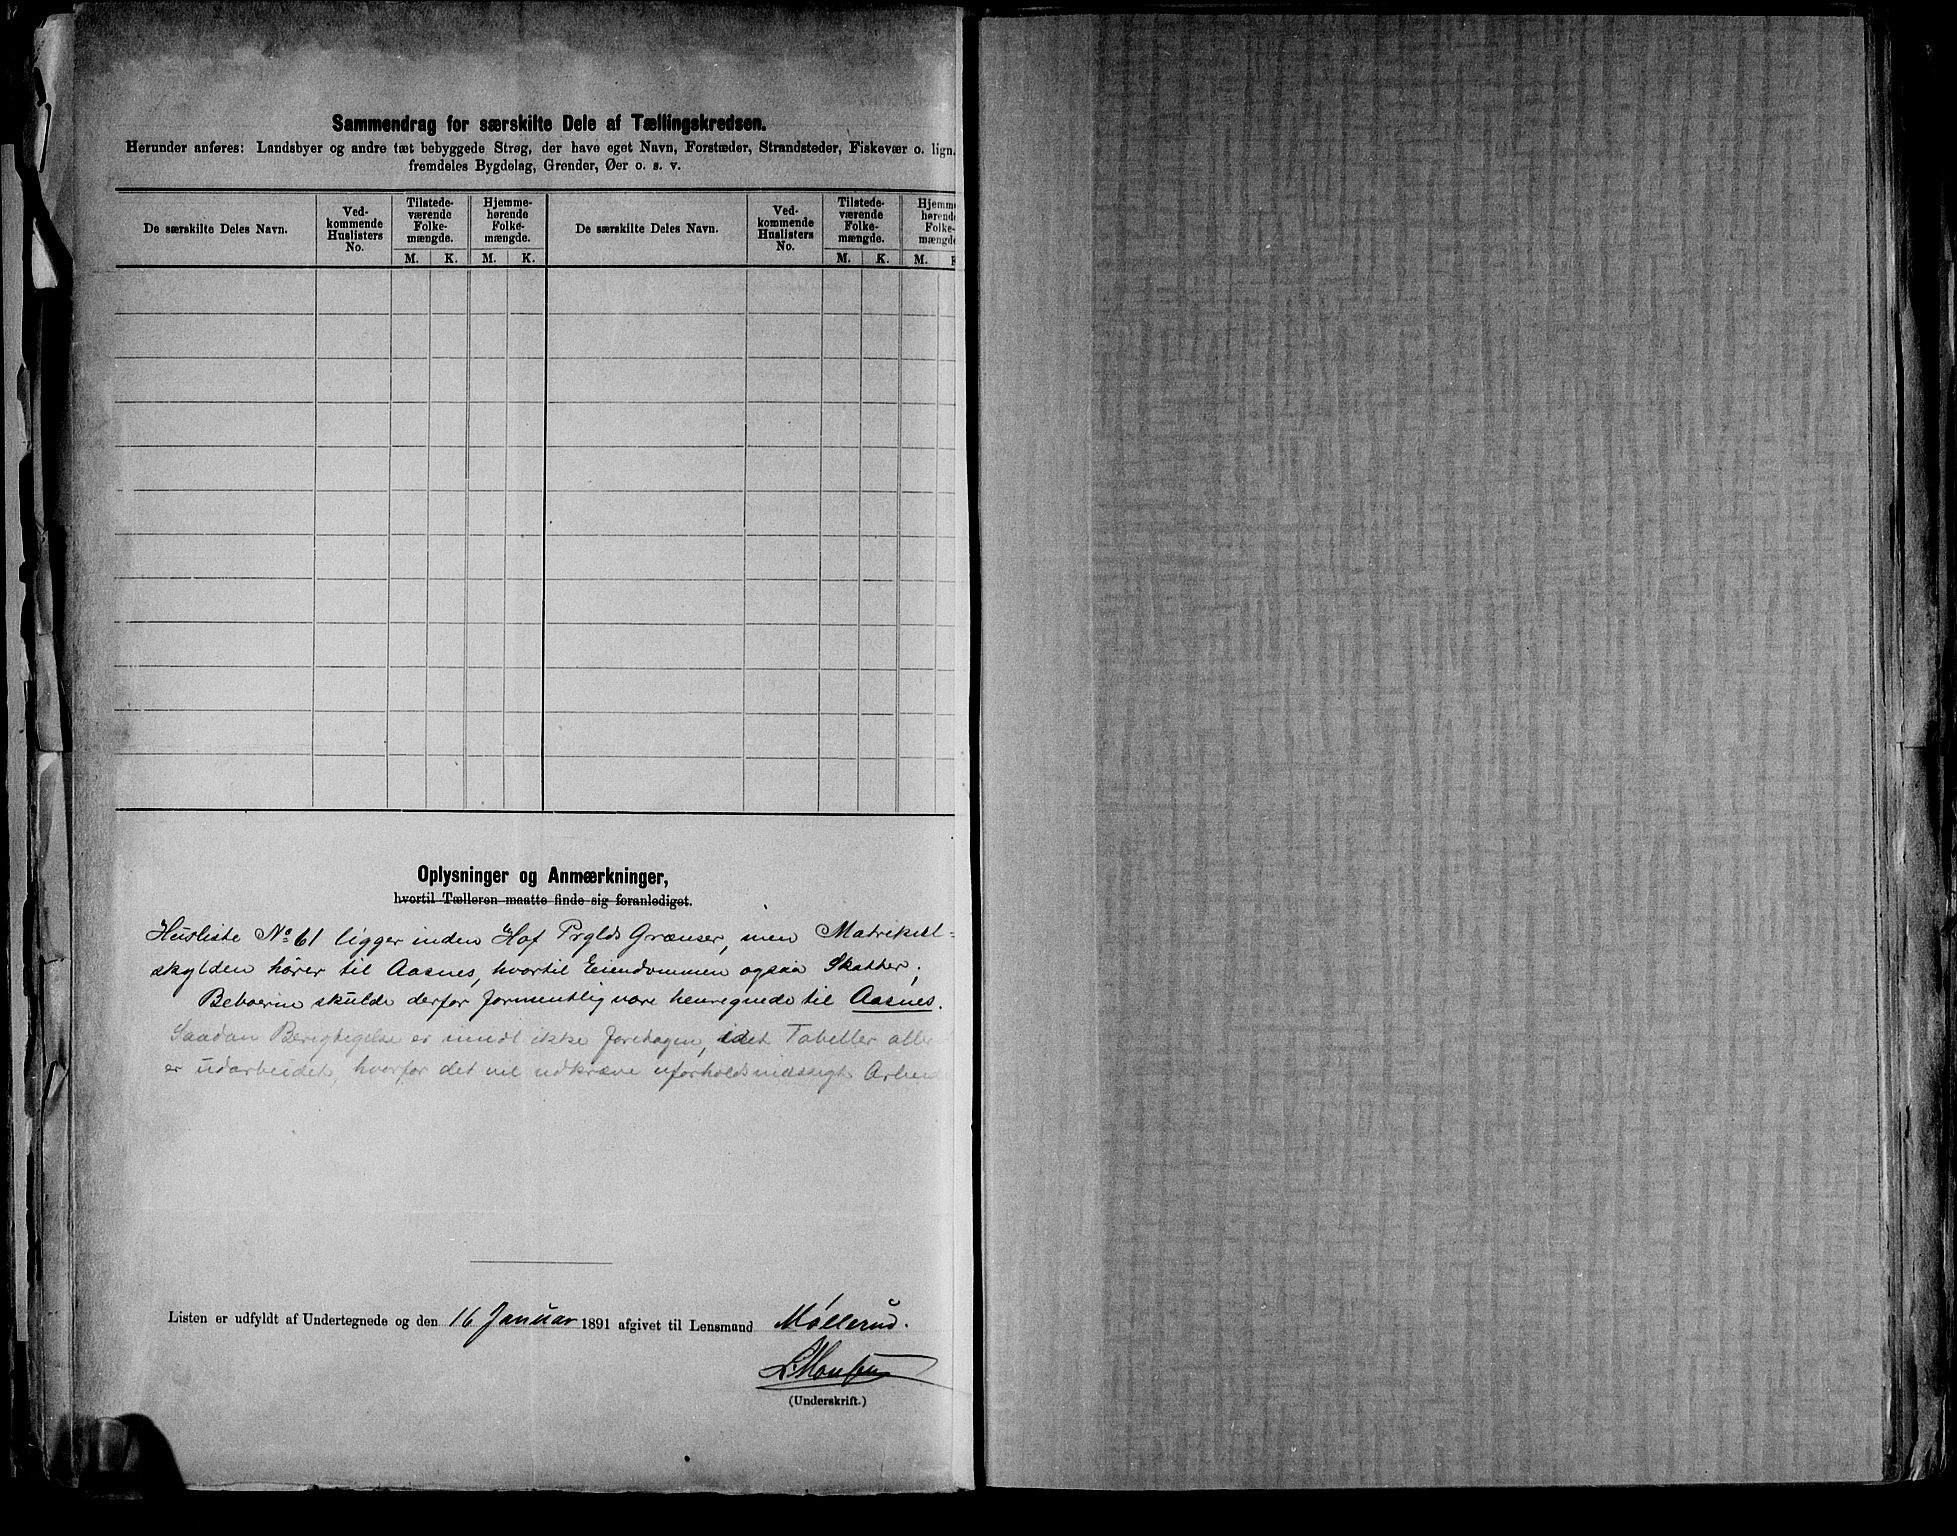 Sammendrag for særskilte Dele af Tællingskredsen.
Herunder anføres: Landsbyer og andre tæt bebyggede Strøg, der have eget Navn, Forstæder, Strandsteder, Fiskevær o. lign.
fremdeles Bygdelag, Grender, Øer o. s. v.
De særskilte Deles Navn. Ved-kommende Huslisters No. Tilstede-værende Folke-mængde. Hjemme-hørende Folke-mængde. De særskilte Deles Navn. Ved-kommende Huslisters No. Tilstede-værende Folke-mængde. Hjemme hørende Folke-mængde
M. K. M. K. M. K. M. K
Oplysninger og Anmærkninger,
hvortil Tælleren maatte finde sig foranlediget.
Husliste No 61 ligger inden Hof Prglds Grænser, men Matrikul-
skylden hører til Aasnes, hvortil Eiendommen ogsaa Skatter;
Beboerne skulde derfor formentlig være henregnede til Aasnes.
Saadan Berigtigelse er imidt ikke foretagen, idet Tabeller
er udarbeidet, hvorfor det vil udkræve uforholdsmæssigt Arbeid
Listen er udfyldt af Undertegnede og den 16 Januar 1891 afgivet til Lensmand Møllerud.
(Underskrift.)